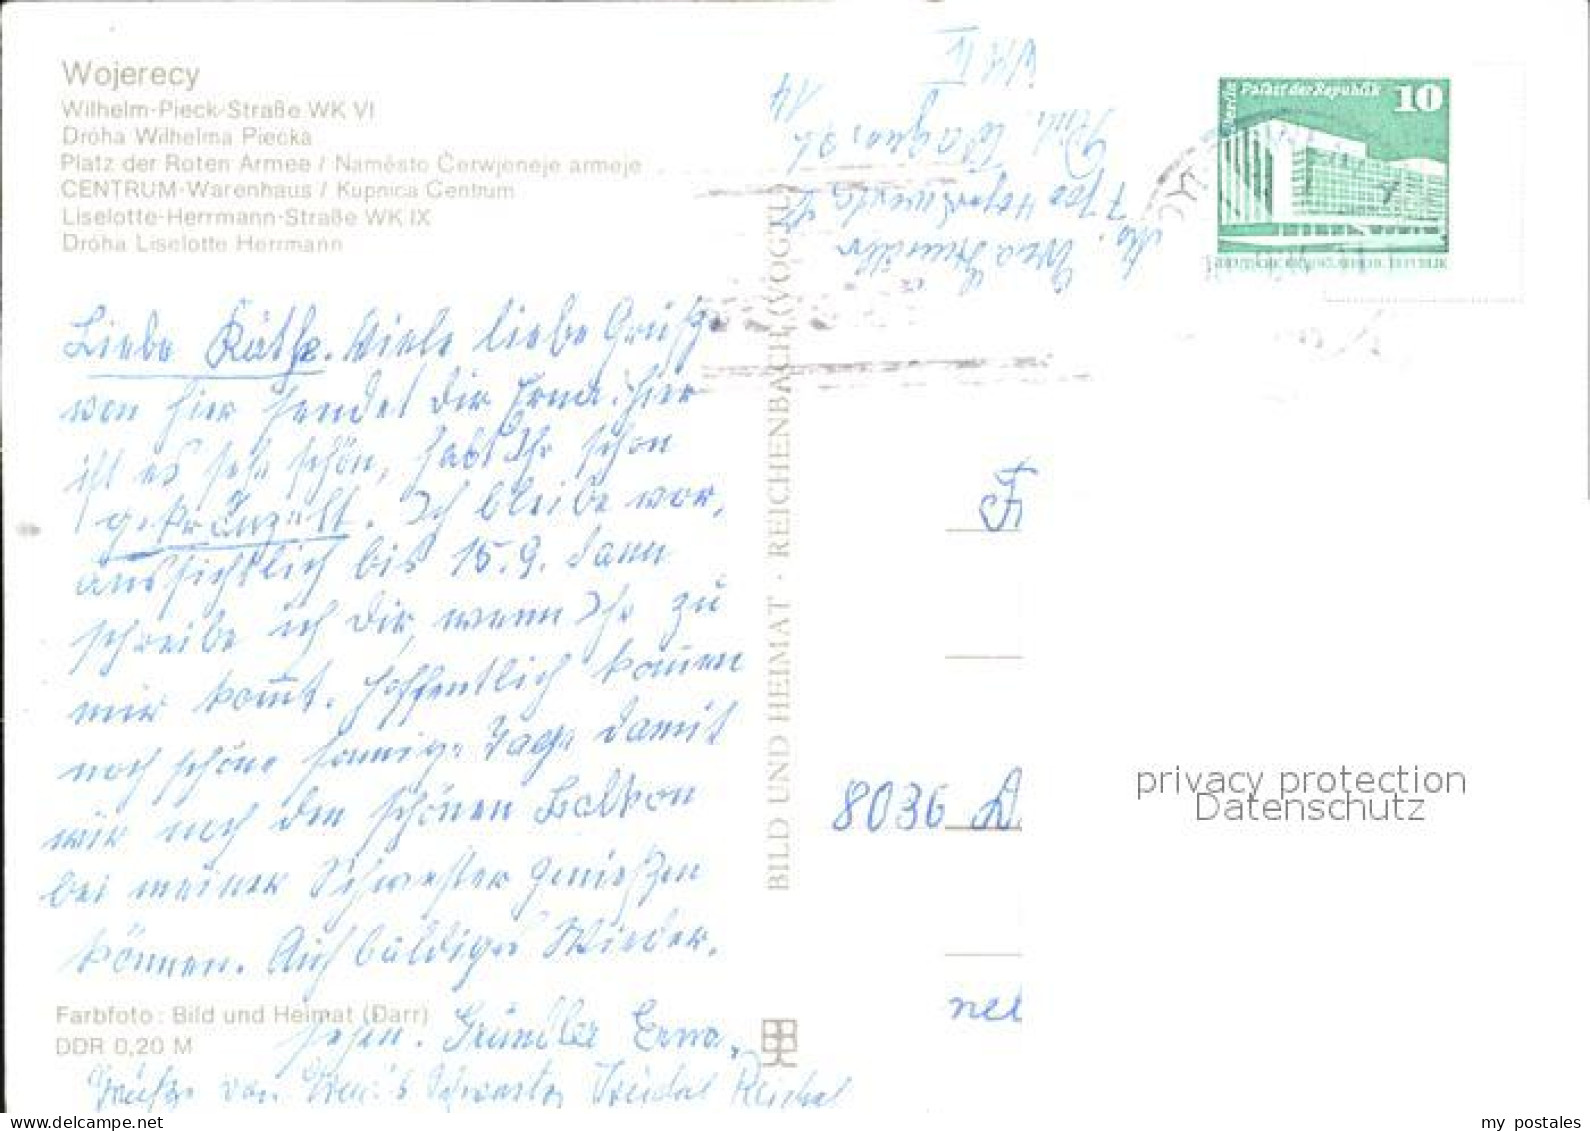 Wojerecy
Wilhelm-Pieck-Straße WK VI
Dróha Wilhelma Piecka
Platz der Roten Armee / Naměsto Čerwjeneje armeje
CENTRUM-Warenhaus / Kupnica Centrum
Liselotte-Herrmann-Straße WK IX
Dróha Liselotte Herrmann
Liebe Käthe. Viele liebe Grüße
von hier sendet dir Erna. hier
ist es sehr schön, habt Ihr schon
Ich bleibe vor,
aussichtlich bis 15.9. dann
schreibe ich dir, wenn Ihr zu
mir kommt. hoffentlich kommen
noch schöne sonnige Tage damit
wir noch den schönen Balkon
bei meiner Schwester genießen
können. Auf baldiges Wieder,
sehen. Gründler Erna,
Grüße von Schwester Reichel
Farbfoto: Bild und Heimat (Darr)
DDR 0,20 M
BILD UND HEIMAT · REICHENBACH (VOGTL)
Abs. Erna Gründler
Berlin Palast der Republik 10
DEUTSCHE DEMOKRATISCHE REPUBLIK
8036 D
privacy protection
Datenschutz
my postales